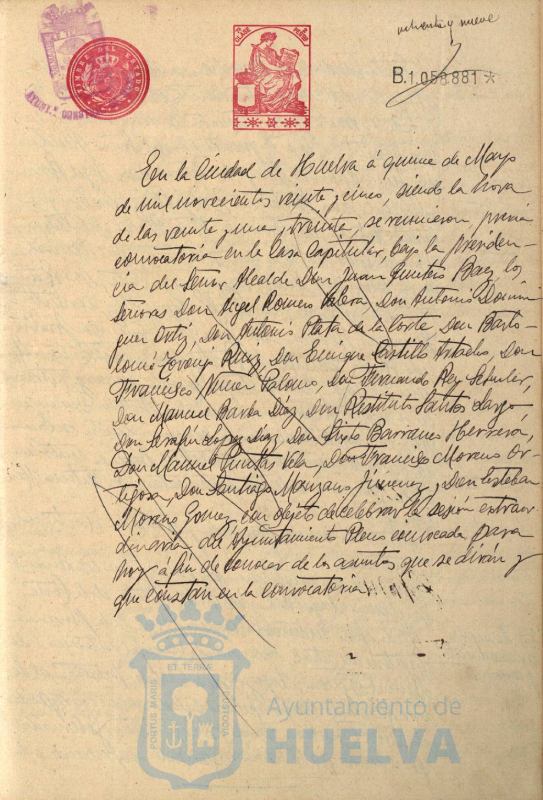 ochenta y nueve
B.1.058.881 *
En la Ciudad de Huelva á quince de Mayo
de mil novecientos veinte y cinco, siendo la hora
de las veinte y una y treinta, se reunieron previa
convocatoria en la Casa Capitular, bajo la presiden-
cia del Señor Alcalde Don Juan Quintero Baez, los
Señores Don Angel Romero Don Antonio Domin
guez Ortiz, Don Antonio Plata de la Corte, Don Barto-
lomé Ruiz, Don Enrique Castillo Don
Francisco Palomo, Don Fernando Rey
Don Manuel Barba Diaz, Don Restituto Santos
Don Serafin Lopez Diaz, Don Sixto Barranco Herrera,
Don Manuel Vela, Don Francisco Moreno Or-
tigosa, Don Santiago Manzano Jimenez y Don Esteban
Moreno Gomez, con objeto de celebrar la sesión extraor
dinaria del Ayuntamiento Pleno convocada para
hoy á fin de conocer de los asuntos que se dirán y
que constan en la convocatoria
PORTUS MARIS ET TERRÆ CUSTODIA
Ayuntamiento de
HUELVA